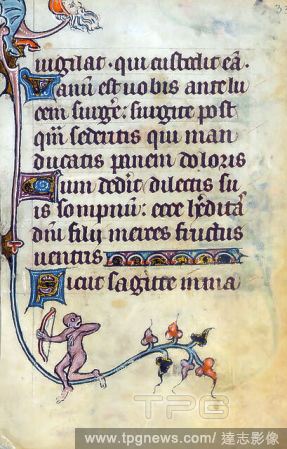 uigilat · qui custodit eā ·
Vanum est uobis ante lu
cem surgere: surgite post
qm̄ sederitis qui man
ducatis panem doloris
Cum dederit dilectis su
is sompnū: ecce heredita
dn̄i filij merces fructus
uentris
Sicut sagitte in ma
TPG
www.tpgnews.com/ 達志影像